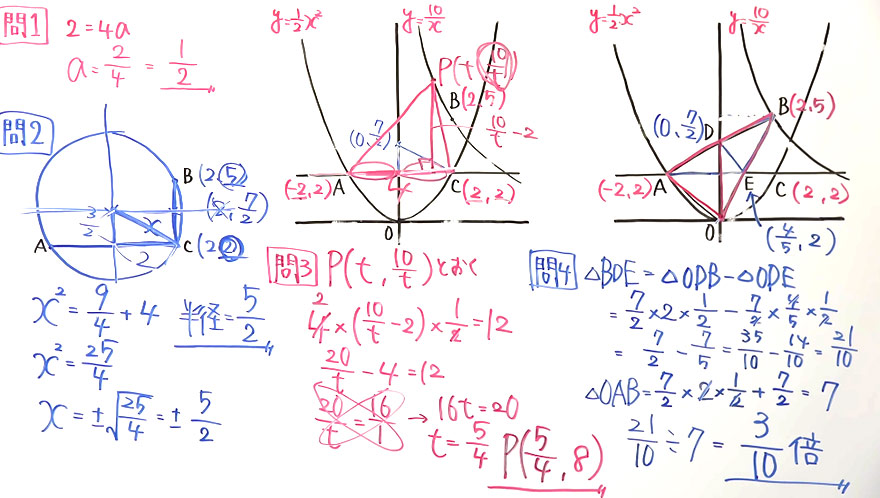 問1
2=4a
a=2/4=1/2
問2
B(2,5)
(2,7/2)
3/2
x
A
2
C(2,2)
x²=9/4+4
半径=5/2
x²=25/4
x=±√25/4=±5/2
y=1/2x²
y=10/x
P(t,10/t)
B(2,5)
(0,7/2)
10/t-2
(-2,2)
A
4
C(2,2)
O
問3 P(t,10/t)とおく
2
4×(10/t-2)×1/2=12
20/t-4=12
20/t=16/1→16t=20
t=5/4
P(5/4,8)
y=1/2x²
y=10/x
B(2,5)
(0,7/2)
D
(-2,2)
A
E
C(2,2)
O
(4/5,2)
問4
△BDE=△ODB-△ODE
=7/2×2×1/2-7/2×4/5×1/2
=7/2-7/5=35/10-14/10=21/10
△OAB=7/2×2×1/2+7/2=7
21/10÷7=3/10倍